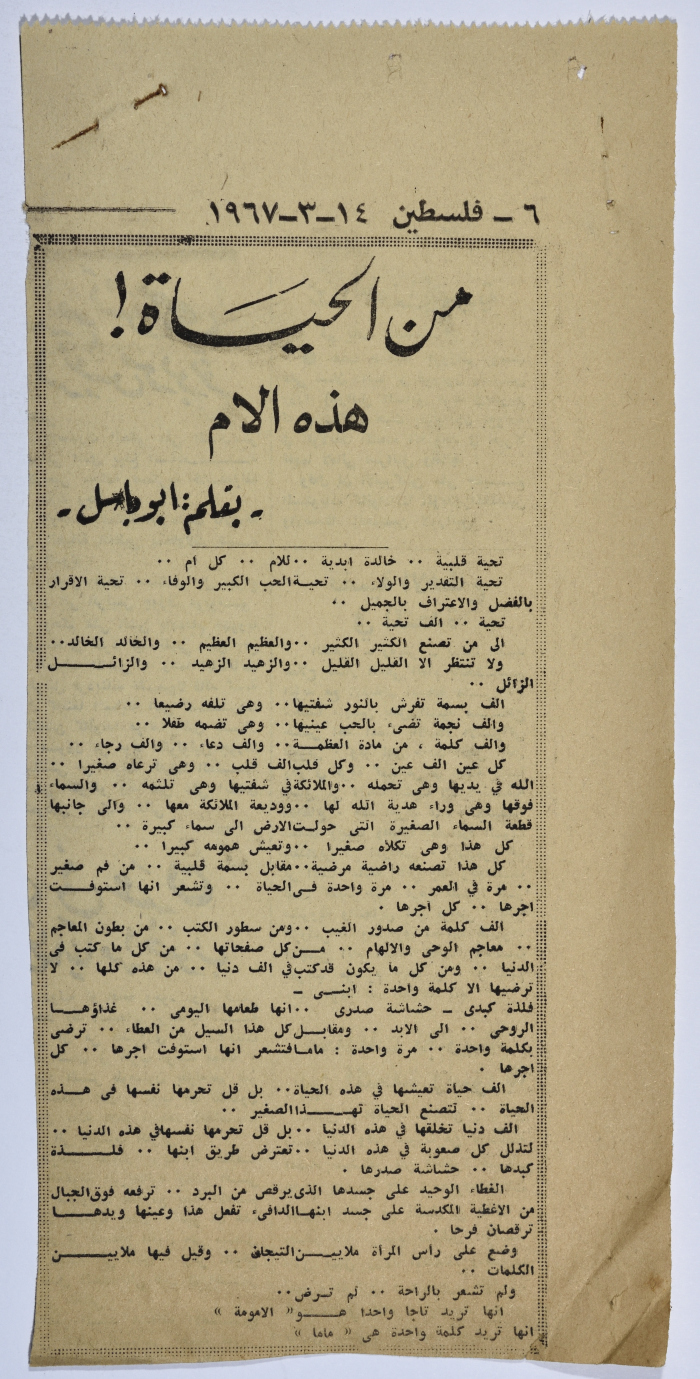 ٦ - فلسطين ١٤-٣-١٩٦٧
من الحياة!
هذه الام
- بقلم: ابو باسل -
تحية قلبية ٠٠ خالدة ابدية ٠٠ للام ٠٠ كل ام ٠٠
تحية التقدير والولاء ٠٠ تحيـة الحب الكبير والوفاء ٠٠ تحية الاقرار
بالفضل والاعتراف بالجميل ٠٠
تحية ٠٠ الف تحية ٠٠
الى من تصنع الكثير الكثير ٠٠ والعظيم العظيم ٠٠ والخالد الخالد٠٠
ولا تنتظر الا القليل القليل ٠٠ والزهيد الزهيد ٠٠ والزائـــــل
الزائل ٠٠
الف بسمة تفرش بالنور شفتيها٠٠ وهى تلفه رضيعا ٠٠
والف نجمة تضىء بالحب عينيها٠٠ وهى تضمه طفلا ٠٠
والف كلمة ، من مادة العظمـــة٠٠ والف دعاء ٠٠ والف رجاء ٠٠
كل عين الف عين ٠٠ وكل قلب الف قلب ٠٠ وهى ترعاه صغيرا ٠٠
الله في يديها وهى تحمله ٠٠ والملائكة في شفتيها وهى تلثمه ٠٠ والسماء
فوقها وهى وراء هدية الله لها ٠٠ ووديعة الملائكة معها ٠٠ والى جانبها
قطعة السماء الصغيرة التى حولـت الارض الى سماء كبيرة ٠٠
كل هذا وهى تكلاه صغيرا ٠٠ وتعيش همومه كبيرا ٠٠
كل هذا تصنعه راضية مرضية٠٠ مقابل بسمة قلبية ٠٠ من فم صغير
٠٠ مرة في العمر ٠٠ مرة واحدة فـى الحياة ٠٠ وتشعر انها استوفــت
اجرها ٠٠ كل اجرها ٠
الف كلمة من صدور الغيب ٠٠ ومن سطور الكتب ٠٠ من بطون المعاجم
٠٠ معاجم الوحى والالهام ٠٠ مــن كل صفحاتها ٠٠ من كل ما كتب فى
الدنيا ٠٠ ومن كل ما يكون قد كتب في الف دنيا ٠٠ من هذه كلها ٠٠ لا
ترضيها الا كلمة واحدة : ابنــى -
فلذة كبدى - حشاشة صدرى ٠٠ انها طعامها اليومى ٠٠ غذاؤهــا
الروحى ٠٠ الى الابد ٠٠ ومقابـل كل هذا السيل من العطاء ٠٠ ترضى
بكلمة واحدة ٠٠ مرة واحدة : ماما فتشعر انها استوفت اجرها ٠٠ كل
اجرها ٠
الف حياة تعيشها في هذه الحياة٠٠ بل قل تحرمها نفسها فى هــذه
الحياة ٠٠ لتصنع الحياة لهــــذا الصغير ٠٠
الف دنيا تخلقها في هذه الدنيا ٠٠ بل قل تحرمها نفسها في هذه الدنيا ٠٠
لتذلل كل صعوبة في هذه الدنيا ٠٠ تعترض طريق ابنها ٠٠ فلـــــذة
كبدها ٠٠ حشاشة صدرها ٠
الغطاء الوحيد على جسدها الذى يرقص من البرد ٠٠ ترفعه فوق الجبال
من الاغطية المكدسة على جسد ابنهــا الدافىء تفعل هذا وعينها ويدهــا
ترقصان فرحا ٠
وضع على رأس المرأة ملاييــن التيجان ٠٠ وقيل فيها ملاييـــــن
الكلمات ٠٠
ولم تشعر بالراحة ٠٠ لم تـرض٠٠
انها تريد تاجا واحدا هـــــو « الامومة »
انها تريد كلمة واحدة هى « ماما »